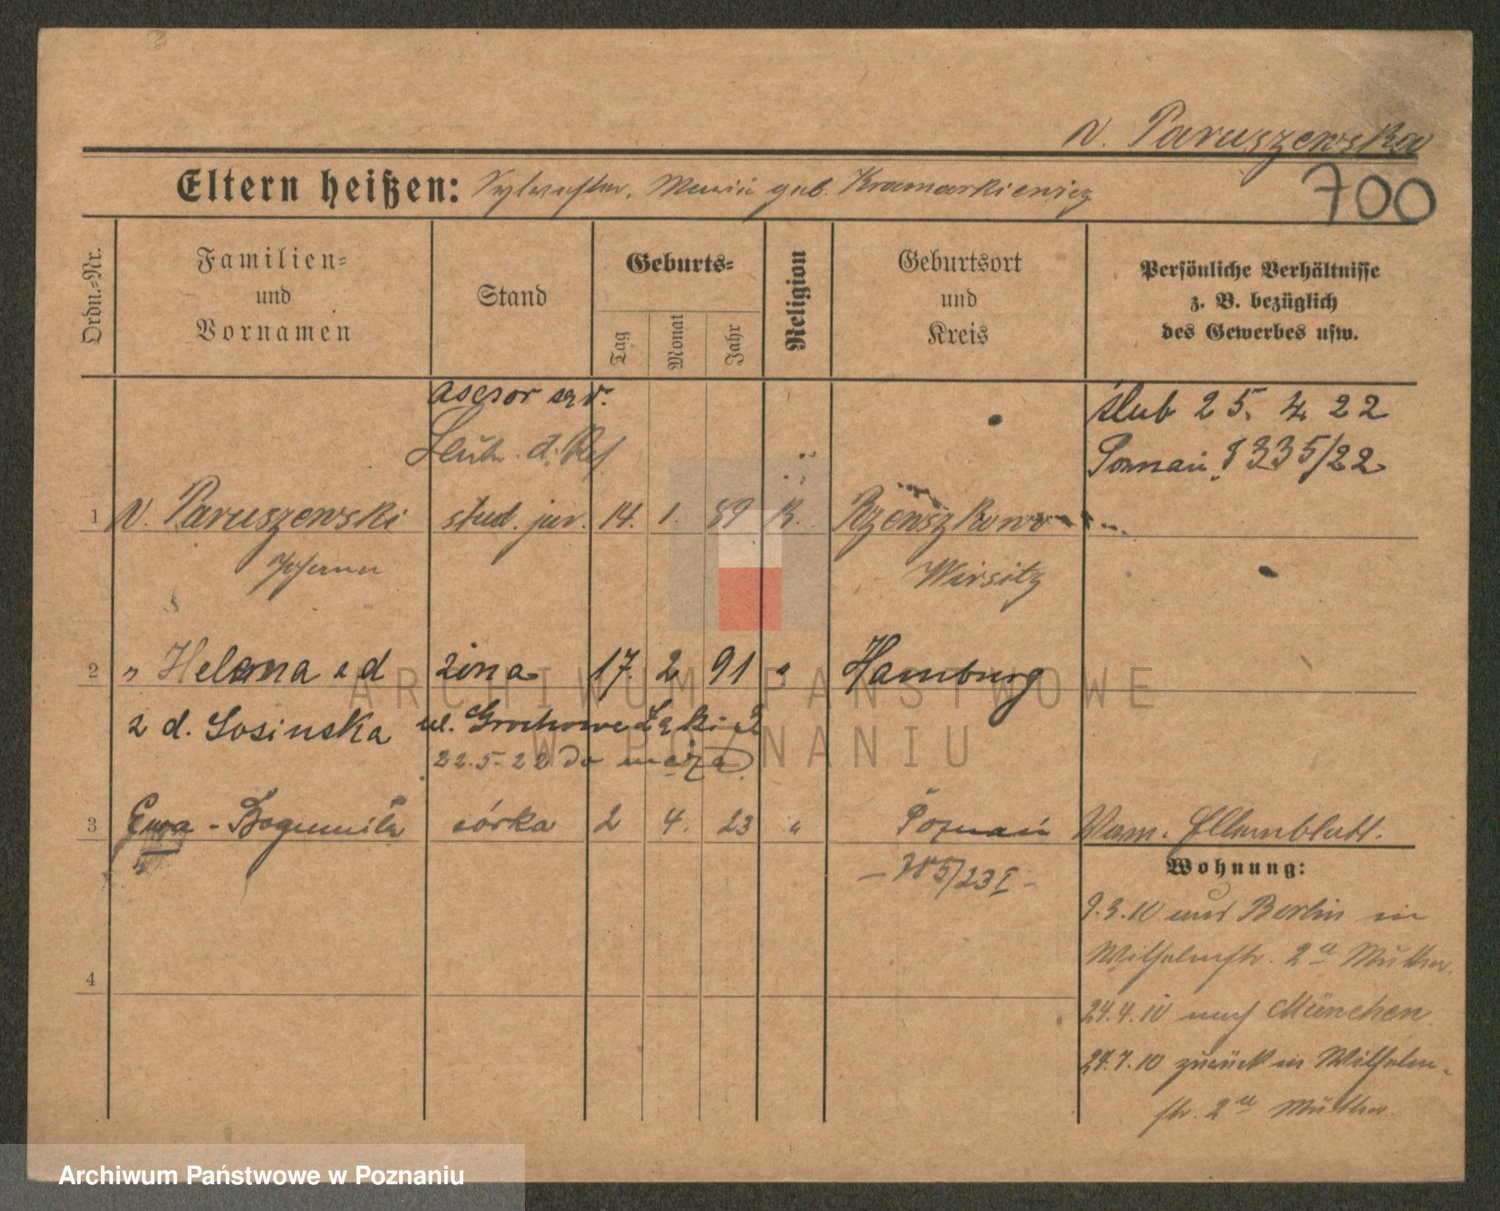 v. Paruszewska
Eltern heißen: Sylvester, Maria geb. Kramarkiewicz
700
Ordn.-Nr.
Familien-
und
Vornamen
Stand
Geburts-
Tag
Monat
Jahr
Religion
Geburtsort
und
Kreis
Persönliche Verhältnisse
z. B. bezüglich
des Gewerbes usw.
asesor
ślub 25. 4. 22
Leutn. d. Res
Poznań, 335/22
1 v. Paruszewski stud. jur. 14. 1. 89 K. Rzenszkowo
Johann Wirsitz
2 " Helena żona 17. 2 91 " Hamburg
z d. Sosinska ul. Grochowe Łąki
22.5.22 do męża
3 Ewa - Bogumiła córka 2 4. 23 " Poznań Vam. Elternblatt.
Wohnung:
785/23 I
9.3.10 und Berlin in
Wilhelmstr. 2a Mutter.
4
24.4.10 nach München.
28.7.10 zurück in Wilhelm-
str. 2a Mutter.
ARCHIWUM PAŃSTWOWE
W POZNANIU
Archiwum Państwowe w Poznaniu